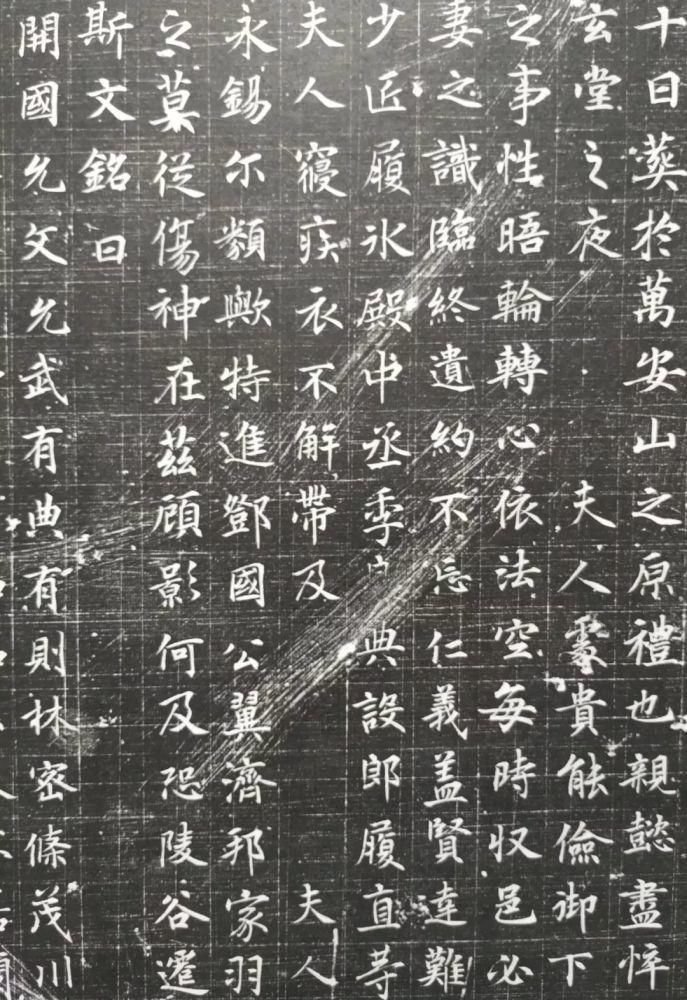 十日葬於萬安山之原禮也親懿盡悴
玄堂之夜 夫人處貴能儉御下
之事性晤輪轉心依法空每時收邑必
妻之識臨終遺約不忘仁義盖賢達難
少匠履氷殿中丞季 典設郎履直等
夫人寢疾衣不解帶及 夫人
永錫尔類歟特進鄧國公翼濟邦家羽
之莫從傷神在茲顧影何及恐陵谷遷
斯文銘曰
開國允文允武有典有則林密條茂川